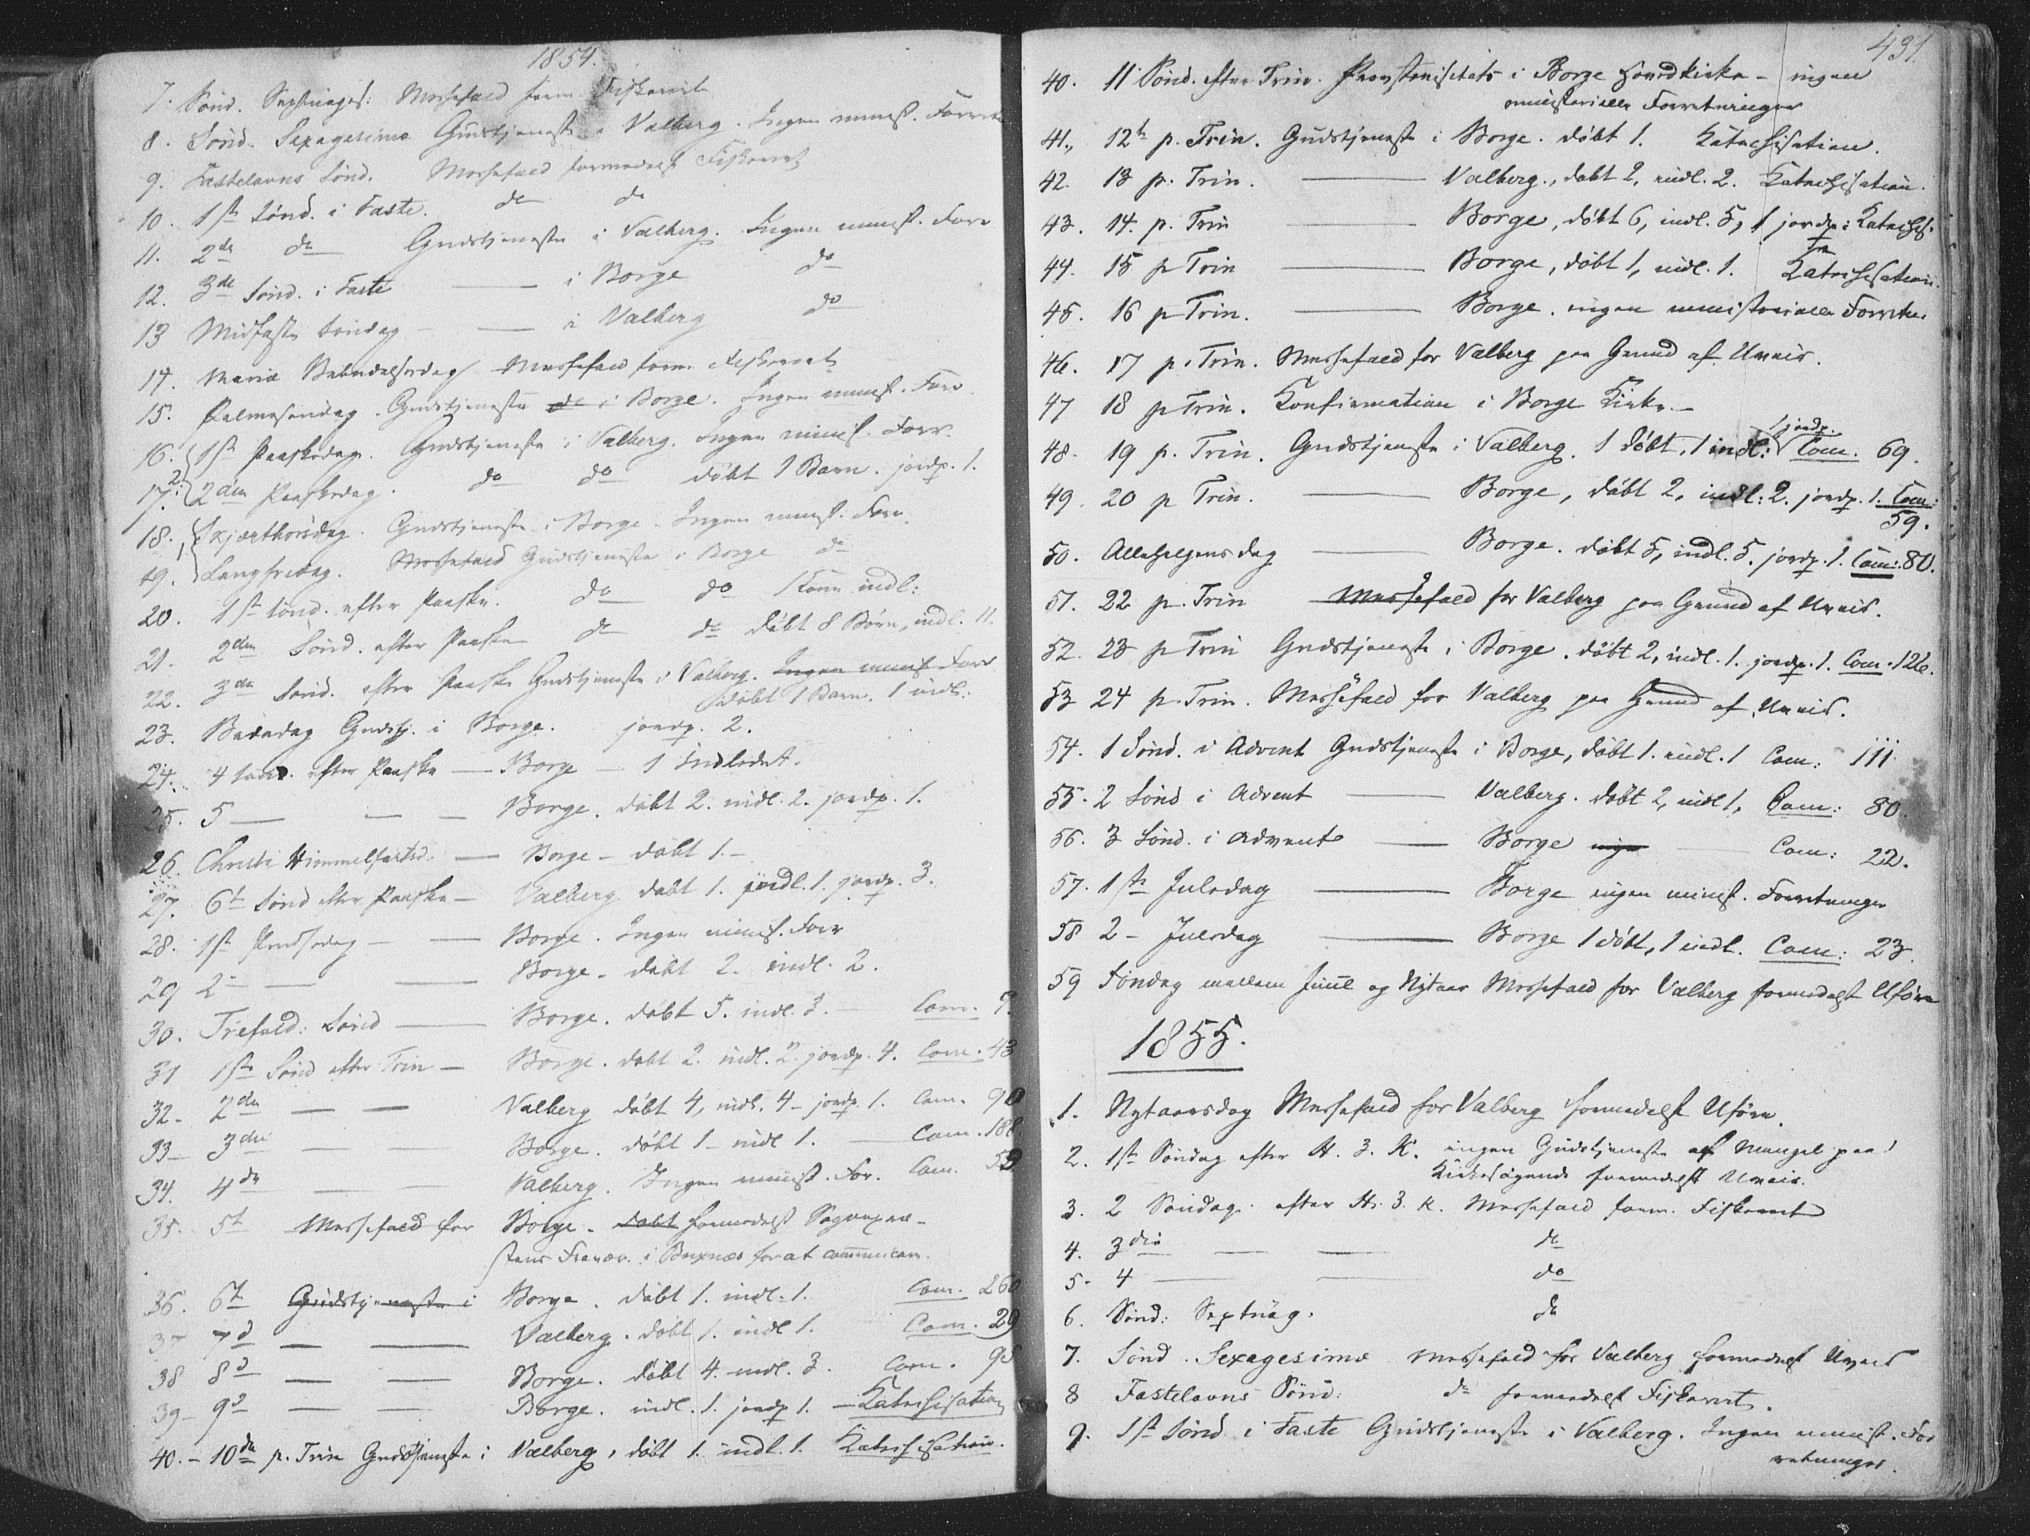 1854.
7. Sønd. Septuages: Messefald form. Fiskeriet
8. Sønd. Sexagesima Gudstjeneste i Valberg. Ingen minist. Forretn
9. Fastelavns Sønd. Messefald formedelst Fiskeriet
10. 1ste Sønd. i Faste. do do
11. 2de do Gudstjeneste i Valberg. Ingen minist. Forr
12. 3de Sønd. i Faste — i Borge do
13 Midfaste Søndag — — i Valberg do
14. Mariæ Bebudelsesdag Messefald form. Fiskeriet
15. Palmesøndag. Gudstjeneste do i Borge. Ingen minist. Forr.
16. 1ste Paaskedag. Gudstjeneste i Valberg. Ingen minist. Forr.
17. 2. 2den Paaskedag. do do døbt 1 Barn. jordp. 1.
18. 1, Skjærthorsdag. Gudstjeneste i Borge. Ingen minist. Forr.
19. Langfredag. Messefald Gudstjeneste i Borge do
20. 1ste Sønd. efter Paaske. do do 1 Kone indl:
21. 2den Sønd. efter Paaske do do døbt 8 Børn, indl. 11.
22. 3die Sønd. efter Paaske Gudstjeneste i Valberg. Ingen minist. Forr
døbt 1 Barn. 1 indl.:
23. Bededag Gudstj. i Borge. jordp. 2.
24. 4 Sønd. efter Paaske — Borge — 1 Indledet.
25. 5 — — — Borge. døbt 2. indl. 2. jordp. 1.
26. Christi Himmelfartsd. — Borge — døbt 1. —
27. 6te Sønd efter Paaske — Valberg døbt 1. indl. 1. jordp. 3.
28. 1ste Pindsedag — — Borge. Ingen minist. Forr
29 2 — — — Borge. døbt 2. indl. 2.
30. Trefold: Sønd — Borge. døbt 5. indl. 3. — Com. 9.
31 1ste Sønd efter Trin — Borge. døbt 2. indl. 2. jordp. 4. Com. 43
32. 2den — — Valberg døbt 4, indl. 4 — jordp. 1. Com. 90
33 — 3die — — Borge. døbt 1 — indl 1. — Com. 188
34. 4de — — Valberg. Ingen minist. For. Com. 53
35. 5te Messefald for Borge. døbt formedelst Sognepræ-
stens Fravær. i Buxnæs for at communicere.
36. 6te Gudstjeneste i Borge. døbt 1. indl. 1. Com. 260
37 7d — — Valberg. døbt 1. indl 1. Com. 29
38 8d — — Borge. døbt 4. indl. 3. Com. 95
39 — 9d — — Borge. indl. 1. jordp 1. — Katechisation
40. — 10de p. Trin Gudstjeneste i Valberg, døbt 1. indl. 1. Katechisation.
431.
40. 11 Sønd. efter Trin. i Borge Hovedkirke — ingen
ministerielle Forretninger
41., 12te p. Trin. Gudstjeneste i Borge. døbt 1. Katechisation.
42. 13 p. Trin. — Valberg., døbt 2, indl. 2. Katechisation.
43. 14. p. Trin — Borge, døbt 6, indl. 5, 1 jordp: Kateches.
44. 15 p Trin — Borge, døbt 1, indl. 1. Katechisation.
45. 16 p Trin. — Borge. ingen ministerielle Forretn.
46. 17 p. Trin. Messefald for Valberg paa Grund af Uveir.
47 18 p Trin. Konfirmation i Borge Kirke. —
48. 19 p. Trin. Gudstjeneste i Valberg. 1 døbt, 1 indl: 1 jordp. Com. 69.
49. 20 p Trin. — Borge, døbt 2, indl: 2. jordp. 1. Com:
59.
50. Allehelgensdag — Borge. døbt 5, indl. 5. jordp. 1. Com: 80.
51. 22 p. Trin Messefald for Valberg paa Grund af Uveir.
52. 23 p Trin Gudstjeneste i Borge. døbt 2, indl. 1. jordp. 1. Com. 126.
53 24 p. Trin. Messefald for Valberg paa Grund af Uveir.
54. 1 Sønd. i Advent Gudstjeneste i Borge, døbt 1. indl. 1 Com: 111
55. 2 Sønd i Advent — Valberg. døbt 2, indl 1, Com: 80.
56. 3 Sønd. i Advent — Borge ingen — Com: 22.
57. 1ste Juledag — Borge ingen minist. Forretninger
58 2 — Juledag — Borge 1 døbt, 1 indl. Com: 23.
59 Søndag mellem Juul og Nytaar Messefald for Valberg formedelst Uføre
1855.
1. Nytaarsdag Messefald for Valberg formedelst Uføre.
2. 1ste Søndag efter H. 3. K. ingen Gudstjeneste af Mangel paa
Kirkesøgende formedelst Uveir.
3. 2 Søndag efter H. 3. K. Messefald form. Fiskeriet
4. 3die — — do
5. 4 — — do
6. Sønd: Septuag. do
7. Sønd. Sexagesima Messefald for Valberg formedelst Uveir
8 Fastelavns Sønd: do formedelst Fiskeriet.
9. 1ste Sønd i Faste Gudstjeneste i Valberg. Ingen minist. For
retninger.